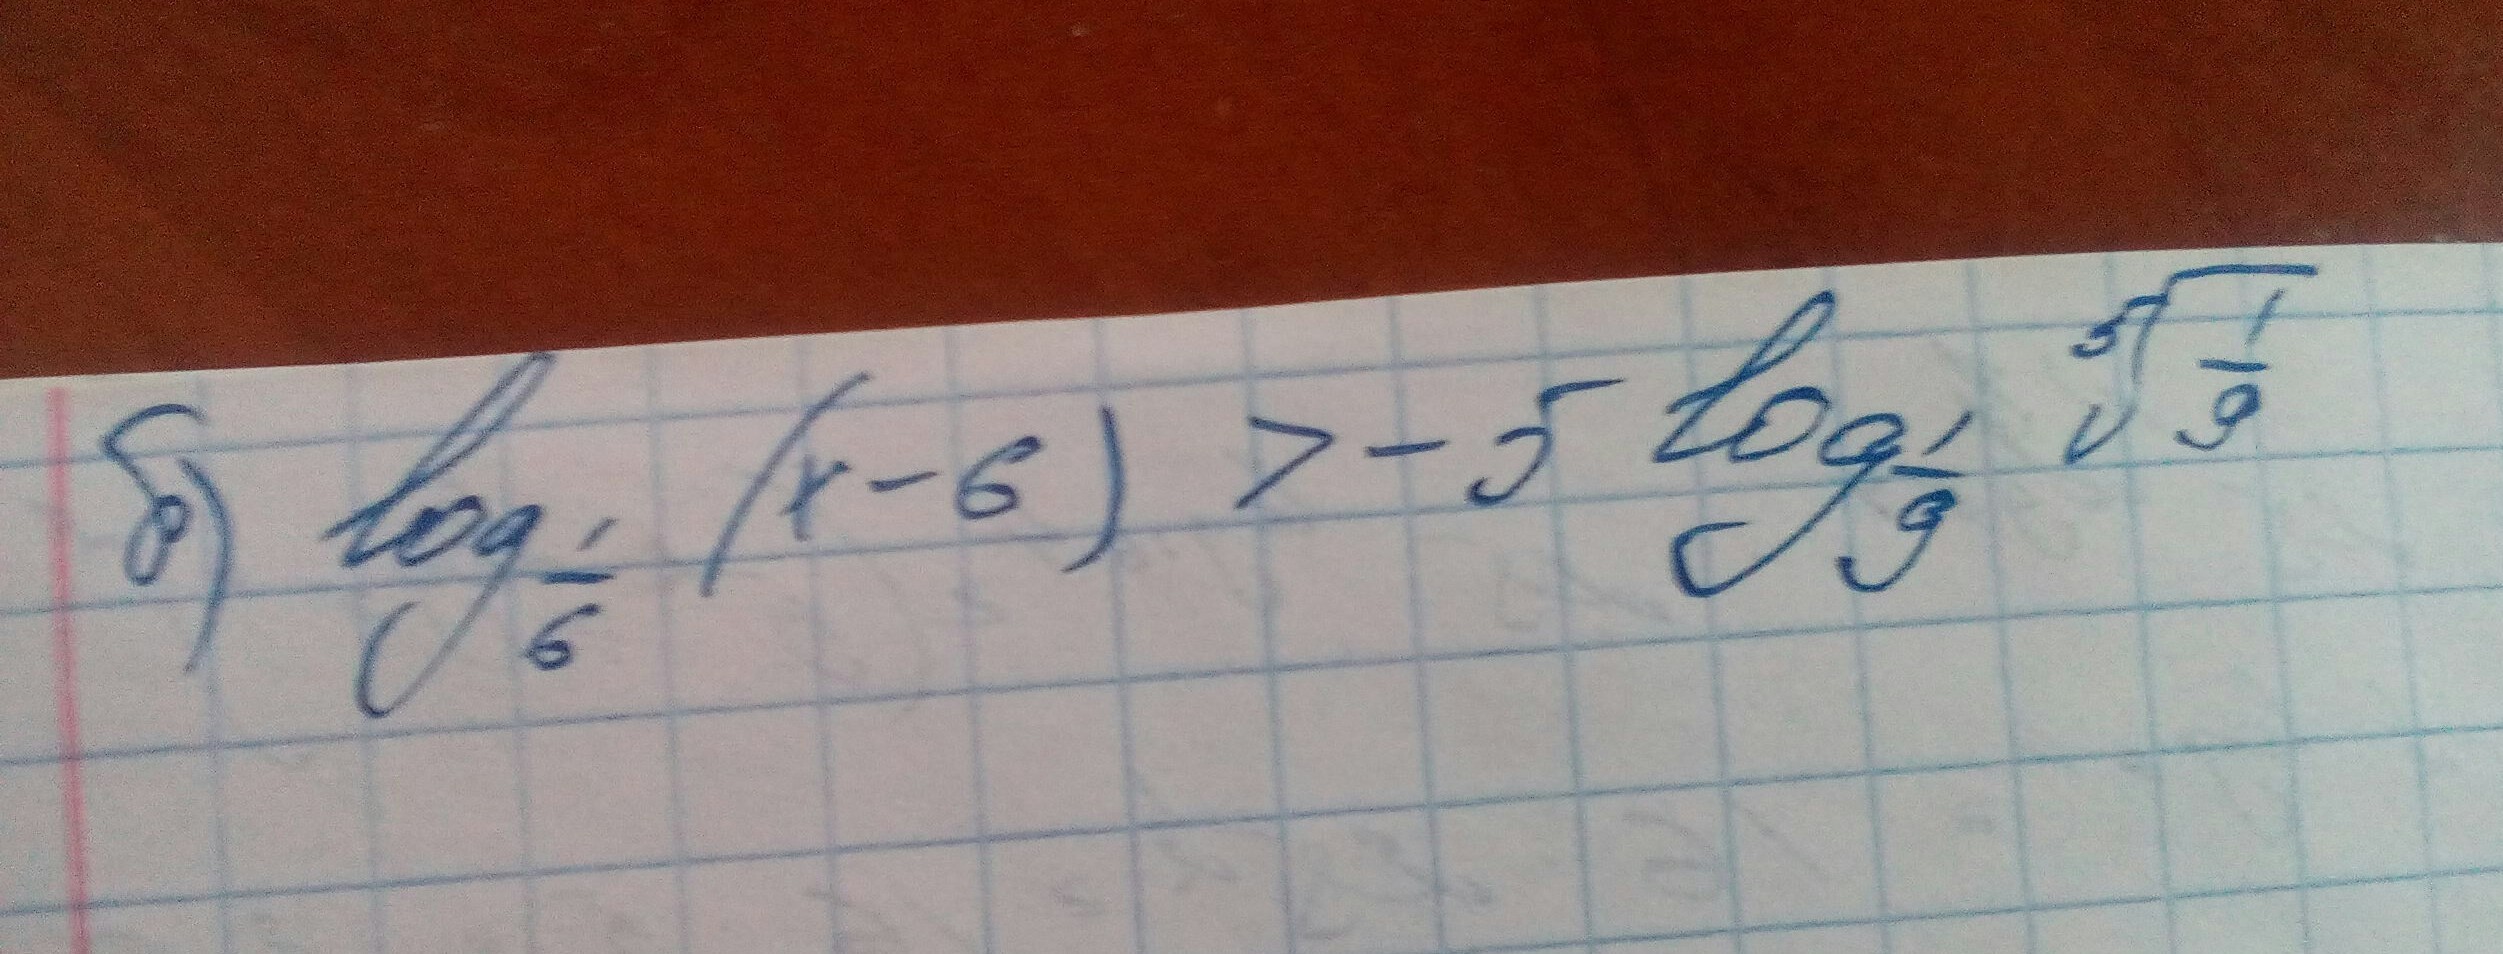 б) log_{1/6} (x-6) > -5 log_{1/9} ⁵√(1/9)